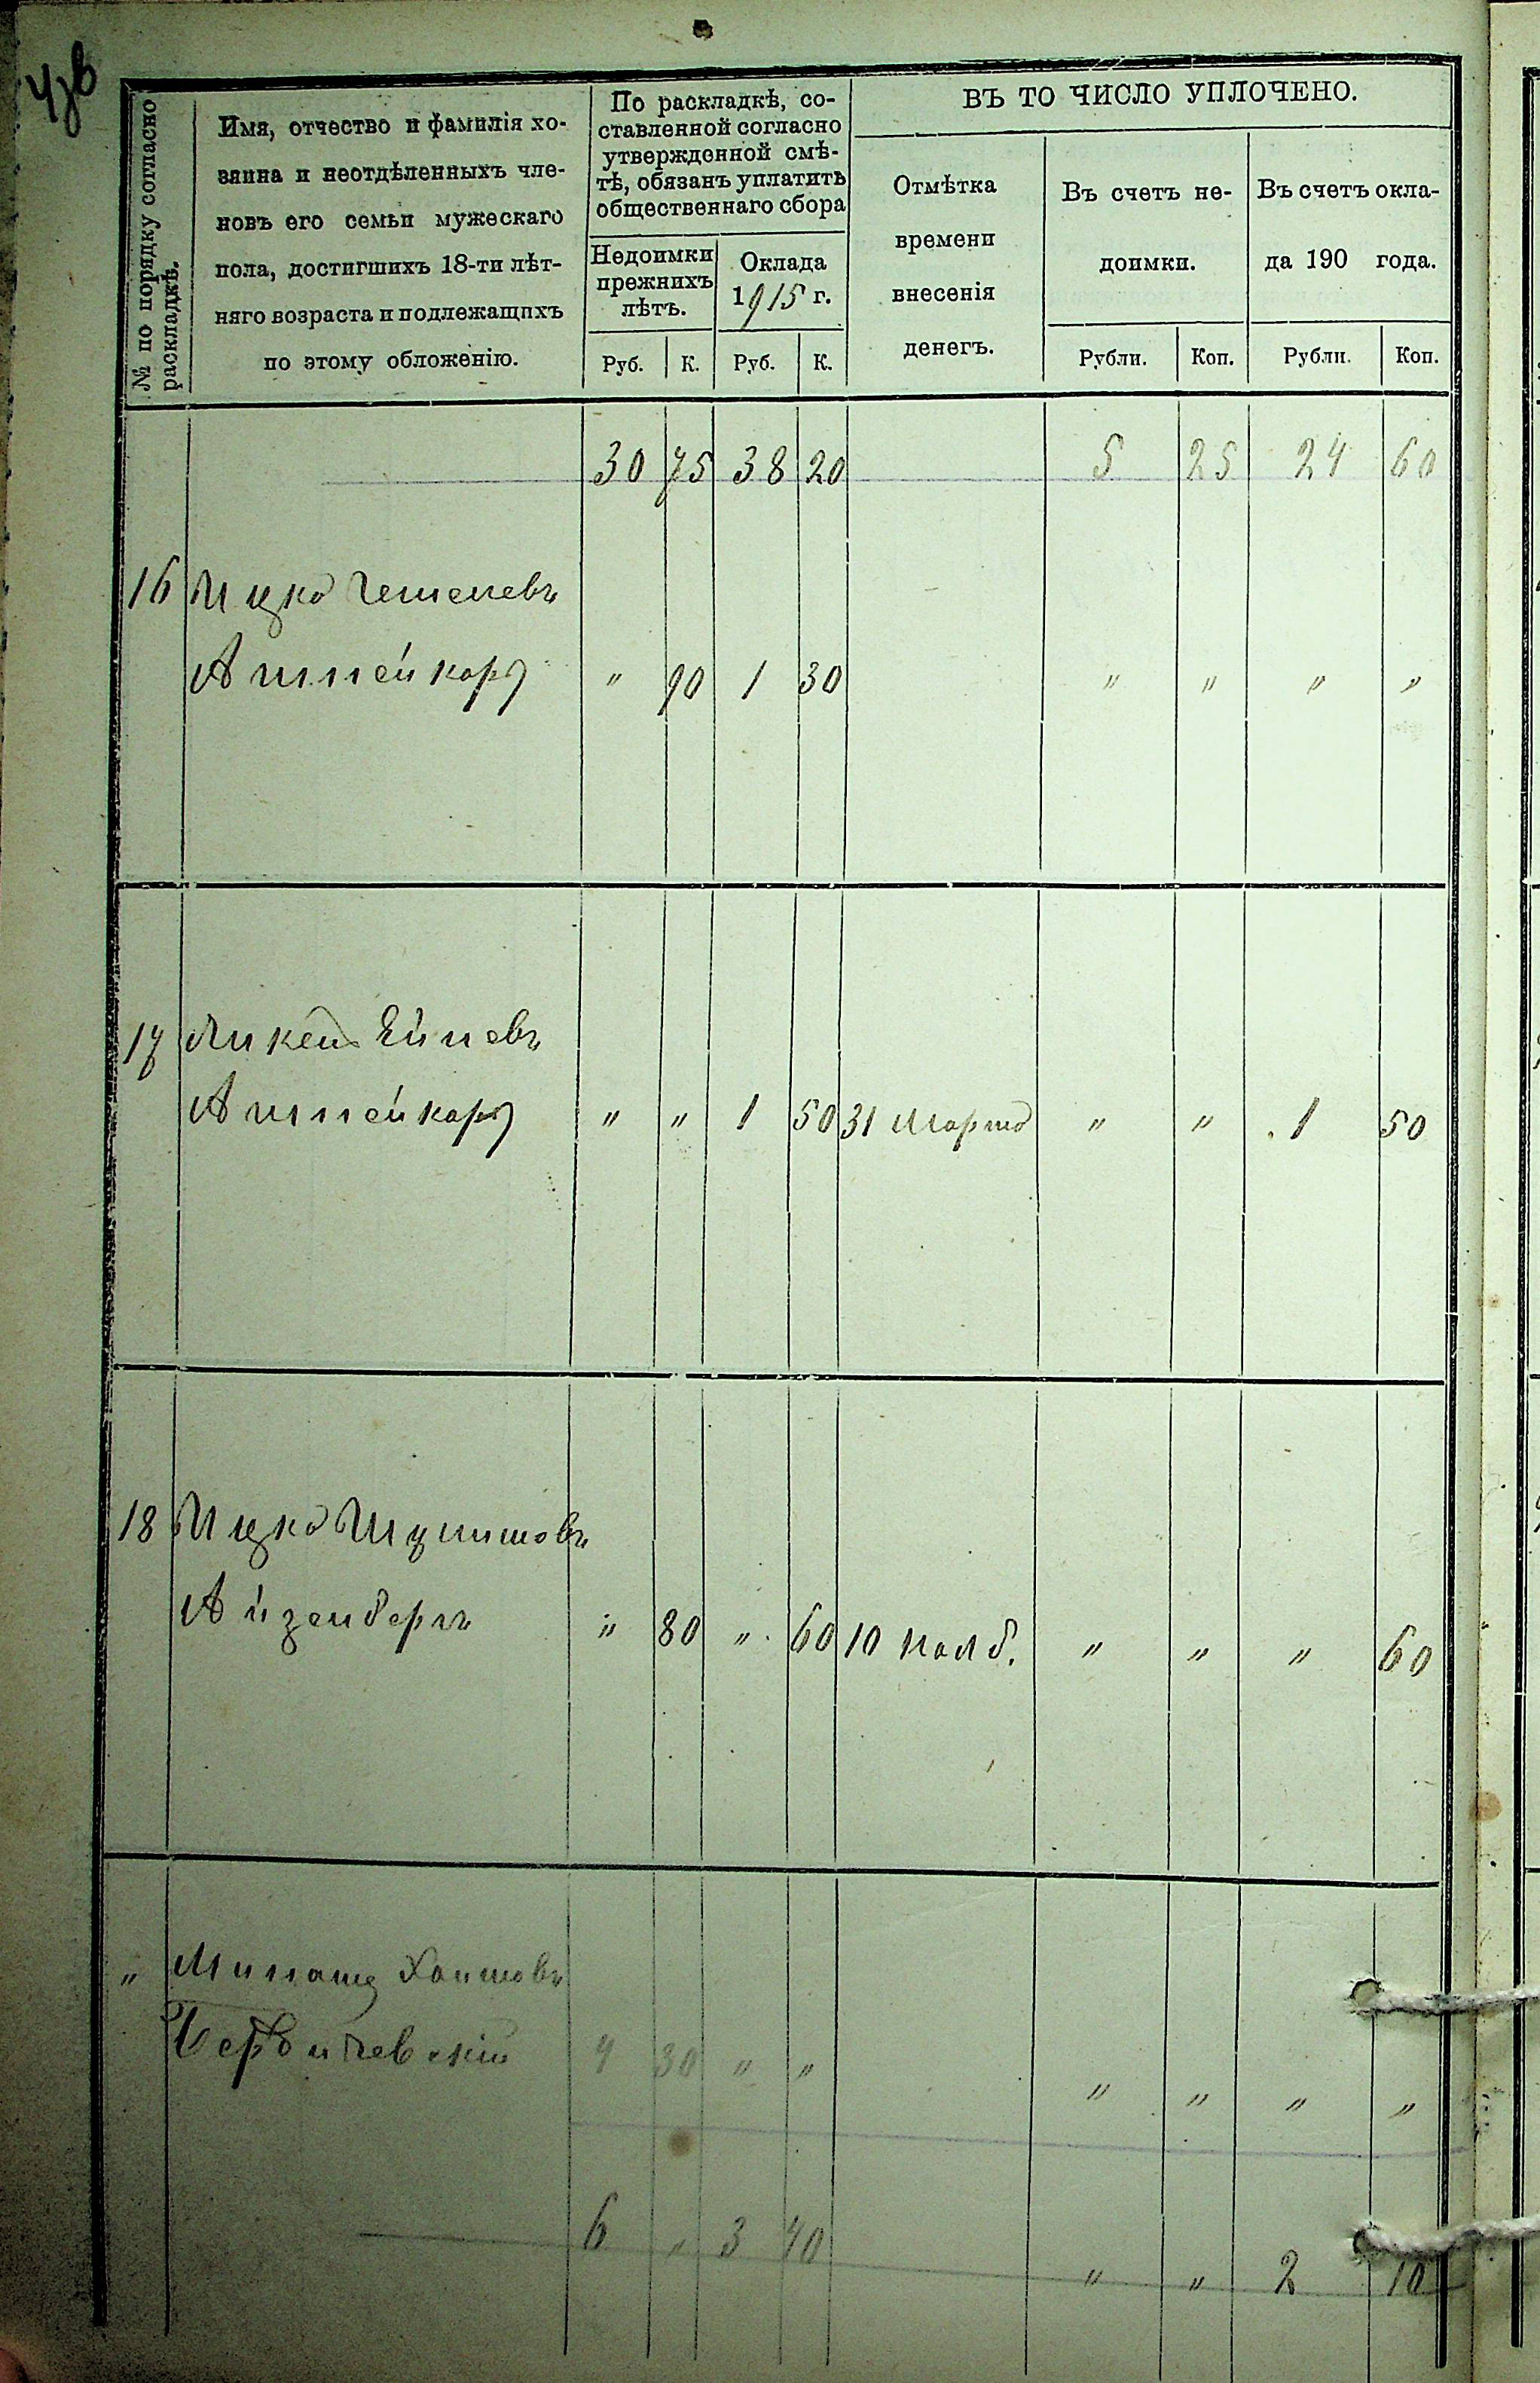 № по порядку согласно раскладкѣ.
Имя, отчество и фамилія хо-
зяина и неотдѣленныхъ чле-
новъ его семьи мужескаго
пола, достигшихъ 18-ти лѣт-
няго возраста и подлежащихъ
по этому обложенію.
По раскладкѣ, со-
ставленной согласно
утвержденной смѣ-
тѣ, обязанъ уплатить
общественнаго сбора
Недоимки
прежнихъ
лѣтъ.
Оклада
1915 г.
Руб. К. Руб. К.
ВЪ ТО ЧИСЛО УПЛОЧЕНО.
Отмѣтка
времени
внесенія
денегъ.
Въ счетъ не-
доимки.
Въ счетъ окла-
да 190 года.
Рубли. Коп. Рубли. Коп.
30 75 38 20 5 25 24 60
16 Ицко
" 90 1 30 " " " "
17
" " 1 50 31 Марта " " 1 50
18 Ицко
Айзенбергъ " 80 " 60 10 нояб. " " " 60
" Хаимовъ
Бердичевскій 4 30 " " " " " "
6 " 3 40 " " 2 10